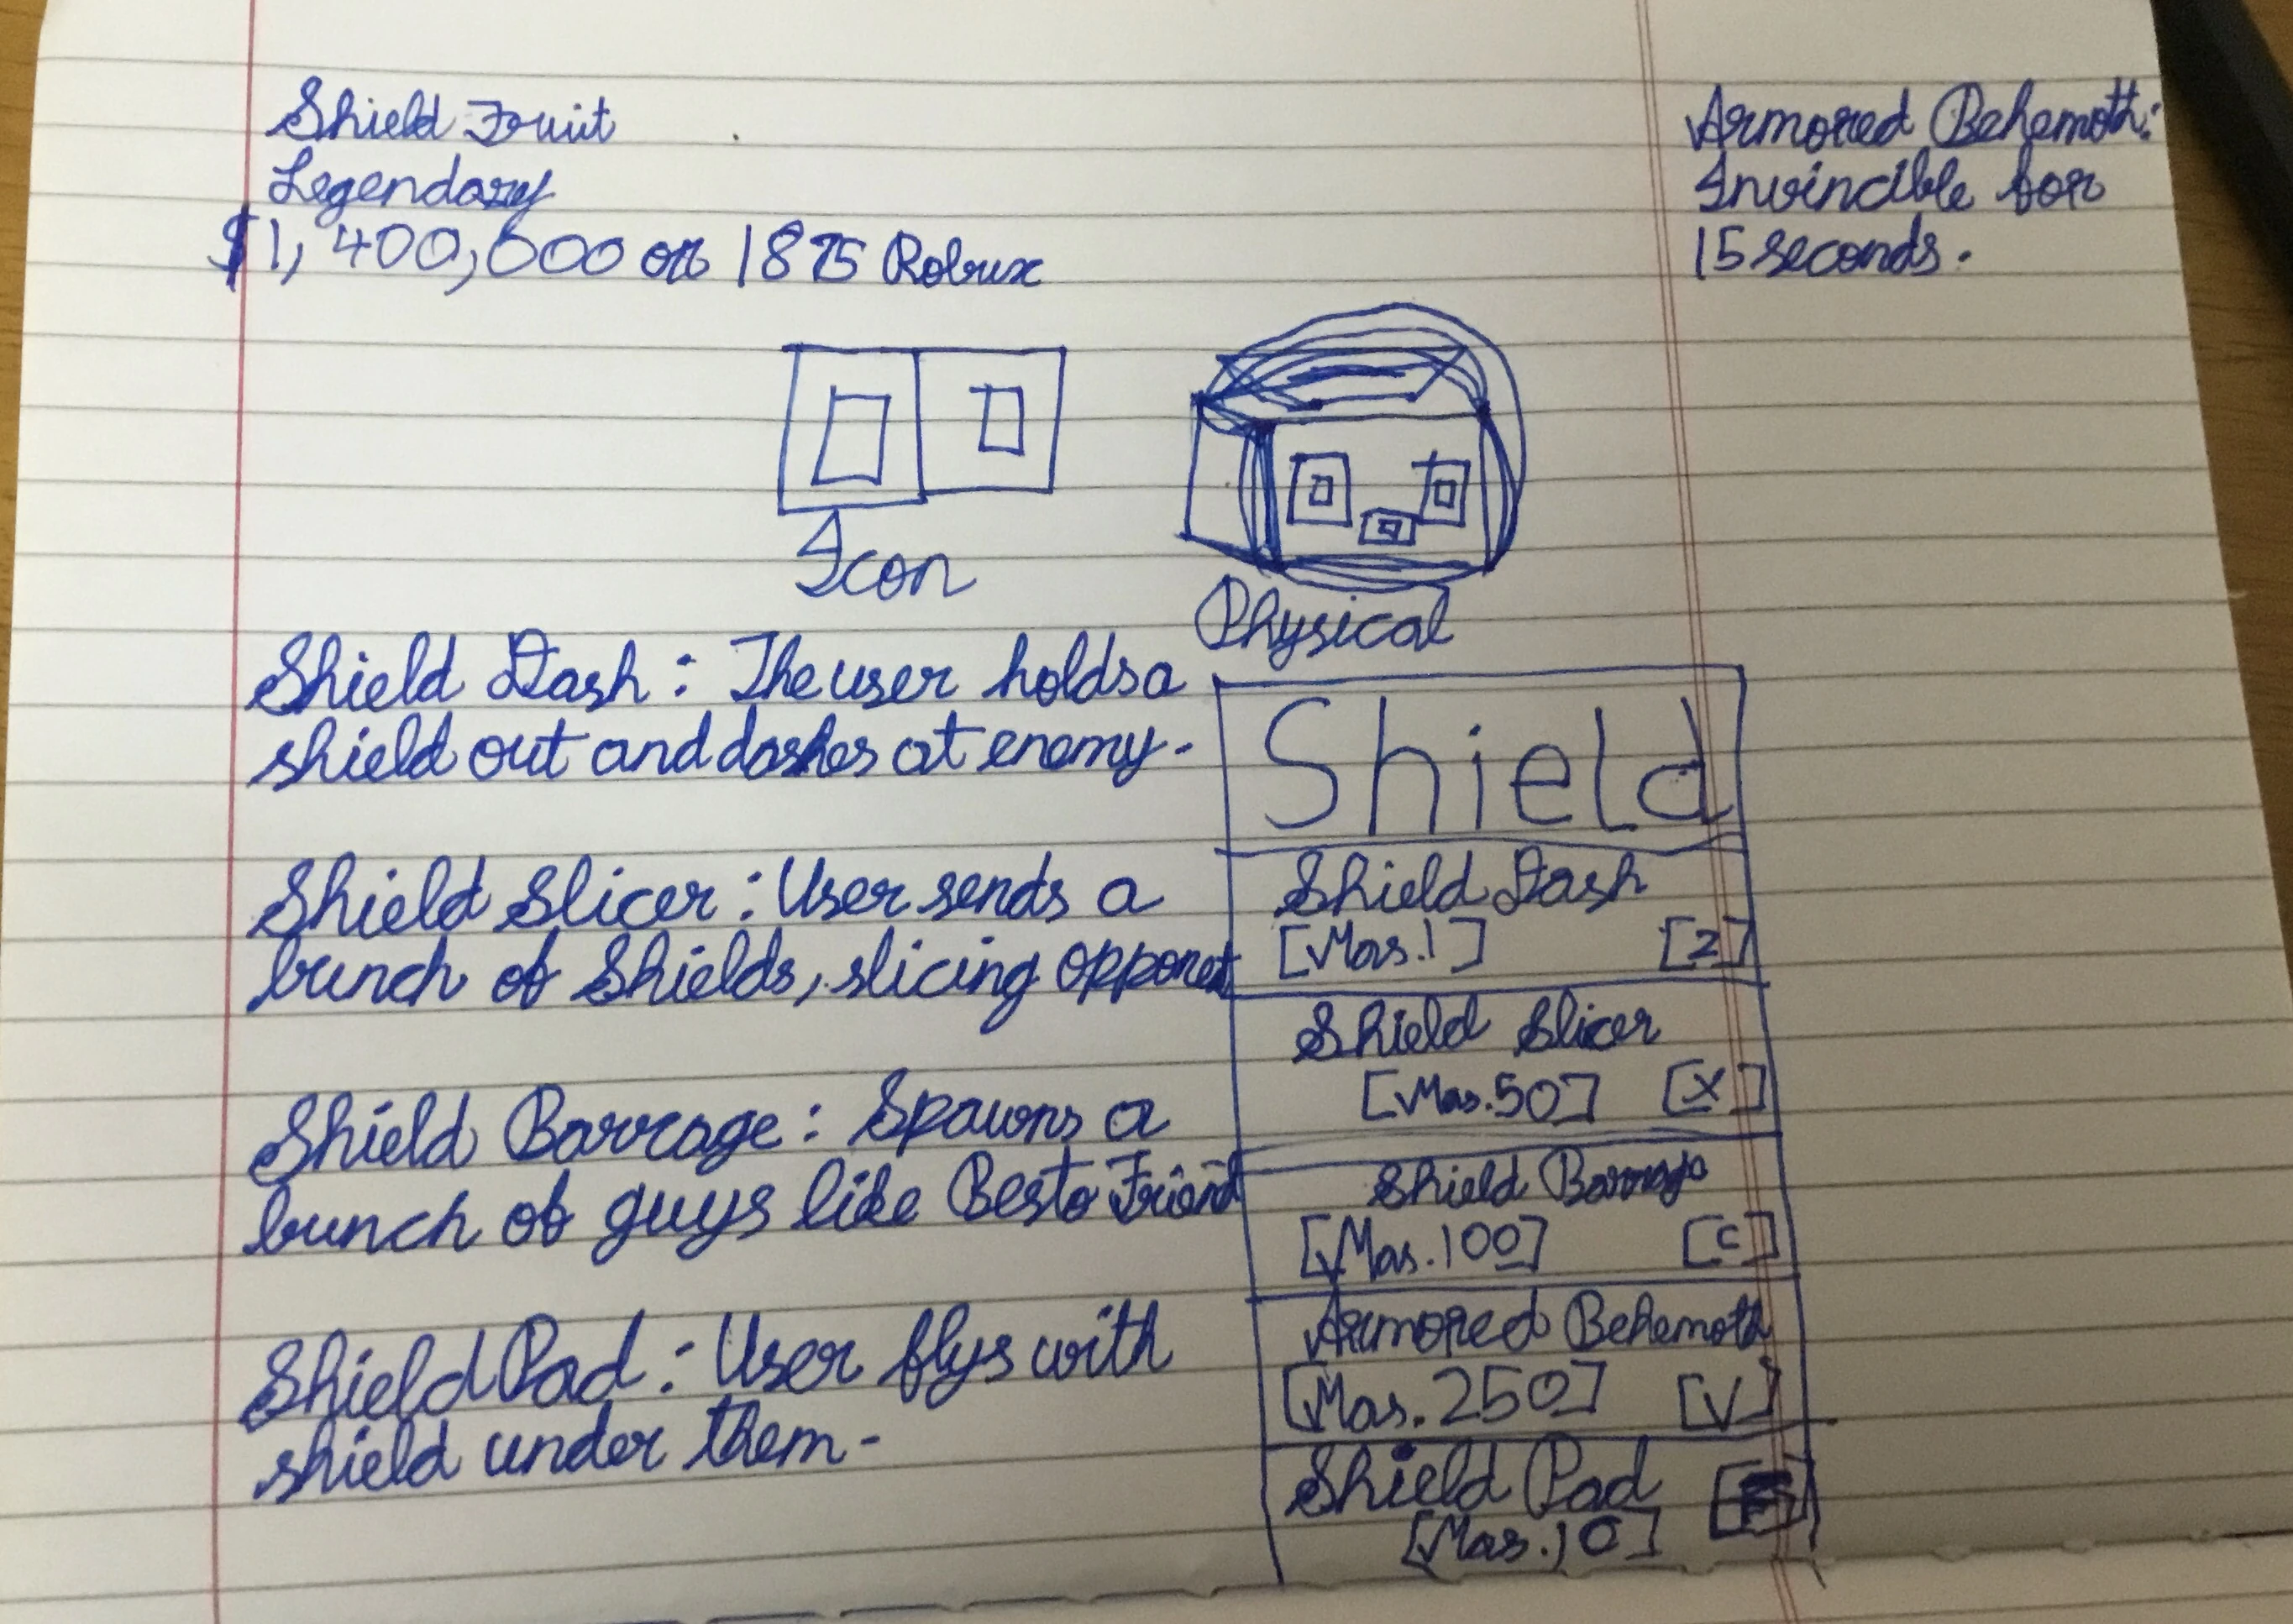 Shield Fruit
Legendary
$1,400,000 or 1875 Robux
Armored Behemoth:
Invincible for
15 seconds.
Icon
Physical
Shield Dash: The user holds a
shield out and dashes at enemy.
Shield Slicer: User sends a
bunch of Shields, slicing opponet
Shield Barrage: Spawns a
bunch of guys like Besto Friend
Shield Pad: User flys with
shield under them.
Shield
Shield Dash
[Mas.1] [Z]
Shield Slicer
[Mas.50] [X]
Shield Barrage
[Mas.100] [C]
Armored Behemoth
[Mas.250] [V]
Shield Pad [F]
[Mas.10]